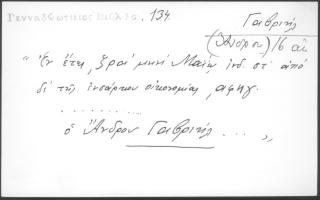 Γενναδ@ωτικιος Βιβλ@ο. , 134
Γαβριήλ
(Ἄνδρου) 16 αἰ
" Ἐν ἔτει ͵ζραʹ μηνὶ Μαΐῳ ἰνδ. στʹ ἀπὸ
δὲ τῆς ἐνσάρκου οἰκονομίας ͵αφηγʹ.
ὁ Ἄνδρου Γαβριήλ . . . . "